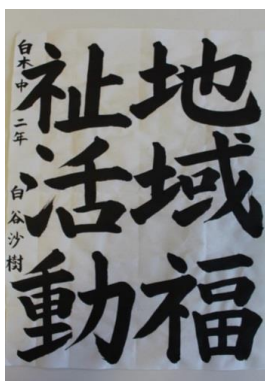 地域福
祉活動
白木中 二年 白谷沙樹